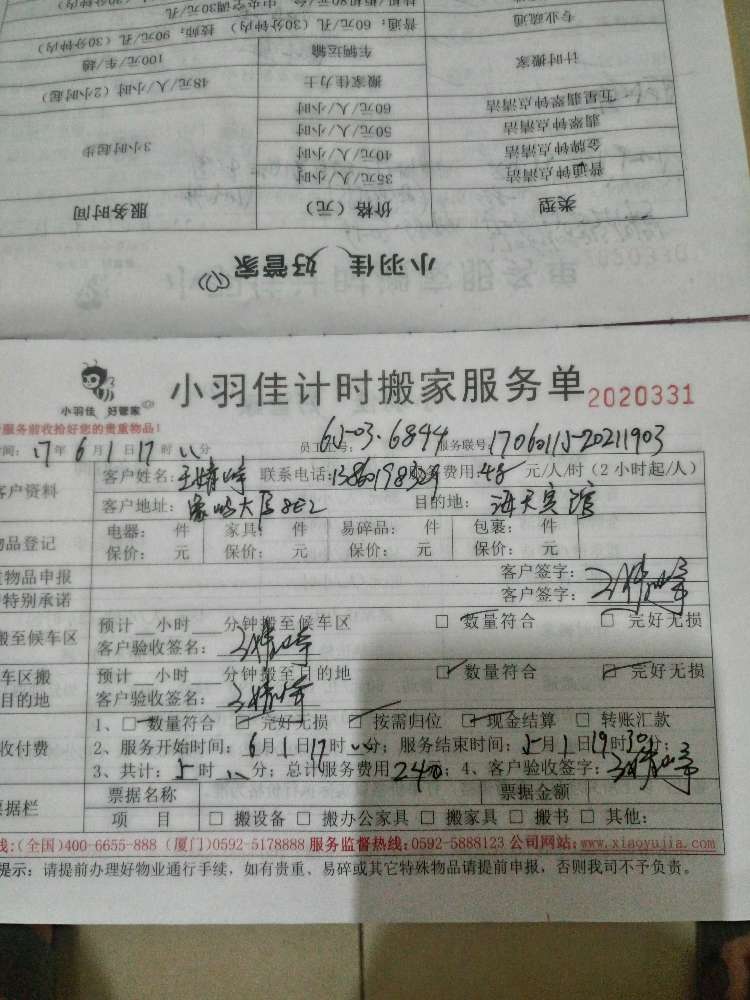 专业疏通 普通：60元/孔（30分钟内） 技师：90元/孔（30分钟内）
计时搬家 车辆运输 100元/车/趟
搬家佳力士 48元/人/小时（2小时起）
五星翡翠钟点清洁 60元/人/小时
翡翠钟点清洁 50元/人/小时 3小时起步
金牌钟点清洁 40元/人/小时
普通钟点清洁 35元/人/小时
类型 价格（元） 服务时间
小羽佳 好管家
小羽佳 好管家
小羽佳计时搬家服务单 2020331
服务前收拾好您的贵重物品！
间：17年6月1日17时 分 员工工号：65-03.6844 服务联号：170601J5-20211903
客户资料 客户姓名： 联系电话： 服务费用：48元/人/时（2小时起/人）
客户地址： 大厦8E2 目的地：海天宾馆
物品登记 电器： 件 家具： 件 易碎品： 件 包裹： 件
保价： 元 保价： 元 保价： 元 保价： 元
物品申报 客户签字：
特别承诺 客户签字：
搬至候车区 预计 小时 分钟搬至候车区 □数量符合 □完好无损
客户验收签名：
车区搬目的地 预计 小时 分钟搬至目的地 □数量符合 □完好无损
客户验收签名：
收付费 1、□数量符合 □完好无损 □按需归位 □现金结算 □转账汇款
2、服务开始时间：6月1日17时 分；服务结束时间： 月1日19时30分；
3、共计：5时 分；总计服务费用240元；4、客户验收签字：
票据栏 票据名称 票据金额
项 目 □搬设备 □搬办公家具 □搬家具 □搬书 □其他:
线:(全国)400-6655-888 (厦门)0592-5178888 服务监督热线:0592-5888123 公司网站:www.xiaoyujia.com
提示：请提前办理好物业通行手续，如有贵重、易碎或其它特殊物品请提前申报，否则我司不予负责。